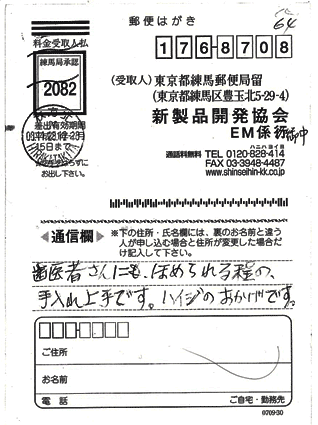 郵便はがき
64
料金受取人払
練馬局承認
2082
差出有効期間
15日まで
お出し下さい。
1768708
(受取人) 東京都練馬郵便局留
(東京都練馬区豊玉北5-29-4)
新製品開発協会
EM係 御中
ハニハ ヨイ歯
通話料無料 TEL 0120-828-414
FAX 03-3948-4487
www.shinseihin-kk.co.jp
通信欄
※下の住所・氏名欄には、裏のお名前と違う
人が申し込む場合と住所が変更した場合だ
け記入して下さい。
歯医者さんにも、ほめられる程の、
手入れ上手です。ハイジのおかげです。
ご住所
お名前
電話
ご自宅・勤務先
0709-30